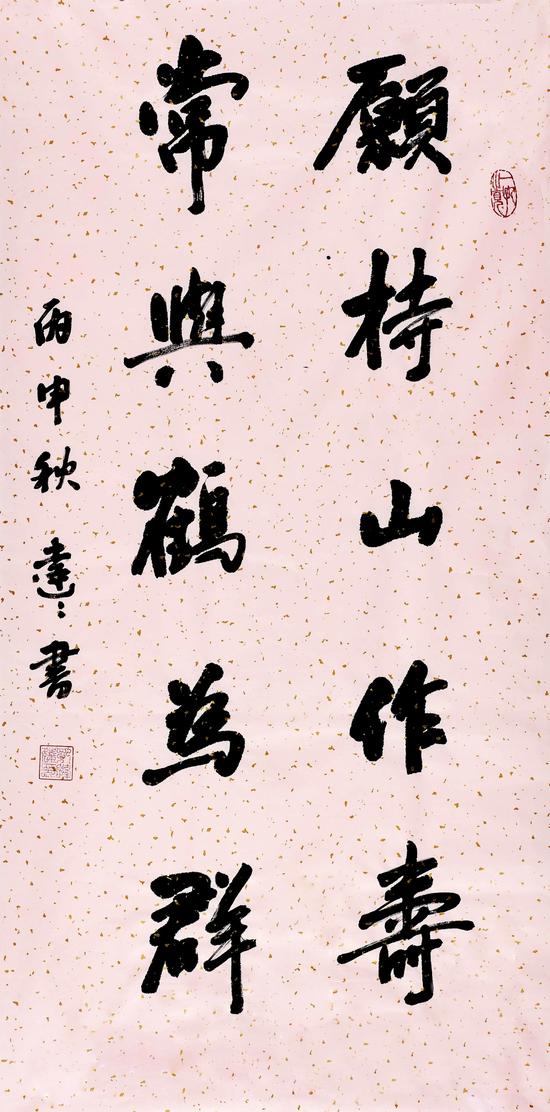 願持山作壽
常與鶴為群
丙申秋 達 書